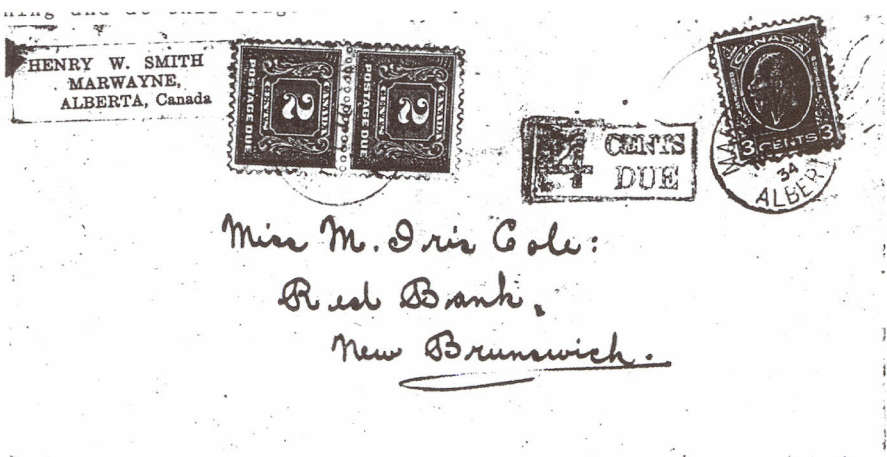 HENRY W. SMITH
MARWAYNE,
ALBERTA, Canada
CANADA
2
CENTS
POSTAGE DUE
CANADA
2
CENTS
POSTAGE DUE
4 CENTS
DUE
CANADA
3 CENTS 3
34
Miss M. Iris Cole:
Red Bank,
New Brunswick.